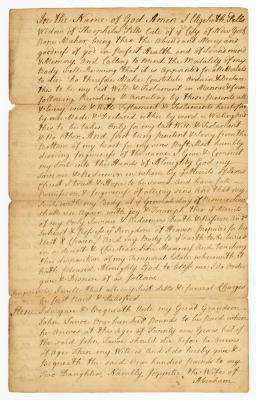 In the Name of God Amen I Elizabeth Pells
Widow of Theophilus Pells late of ye City of New York
Rope Maker being thro the abundant Mercy and
goodness of god in perfect Health and of sound mind
& Memory and Calling to mind the Mortality of my
Body well Knowing that it is appointed for all Mortals
to die Do therefore Make Constitute ordain & Declare
this to be my last Will & Testament in Manner & form
following Revoking & Annulling by these presents all
& Every wills & Will Testament & Testaments heretofore
by me Made & Declared either by word or Writing and
this to be taken Only for my last Will & Testament
& No other And first being penitent & Sorry from the
Bottom of my heart for my sins past, Most humbly
desiring forgiveness of the same I give & Commit
my Soul into the Hands of Almighty God my
Saviour & Redeemer in whom by ye Merits of Jesus
Christ I trust & Hope to be saved And have full
Remission & forgiveness of all my sins And that my
Soul with my Body at ye General day of Resurrection
shall rise Again with Joy & through the Merits
of my Lord's Death & Passion
Inherit & Possess ye Kingdom of Heaven prepared for his
Elect & Chosen And my Body to ye earth to be buried
in a decent & Christian like manner And touching
the disposition of my Temporal Estate wherewith it
hath pleased Almighty God to bless me I do order
give & Dispose of as follows
Imprimis I will that all my Just debts & funeral Charges
be first Paid & Satisfied
Item I do give & Bequeath unto my Great Grandson
John Pound one hundred Pounds to be Paid when
he Arrives at the Age of Twenty one Years but if
the said John should die before he Arrives
of Age Then my Will is and I do hereby give &
Bequeath the said One hundred pounds to my
Two Daughters Namely the Wife of
Abraham